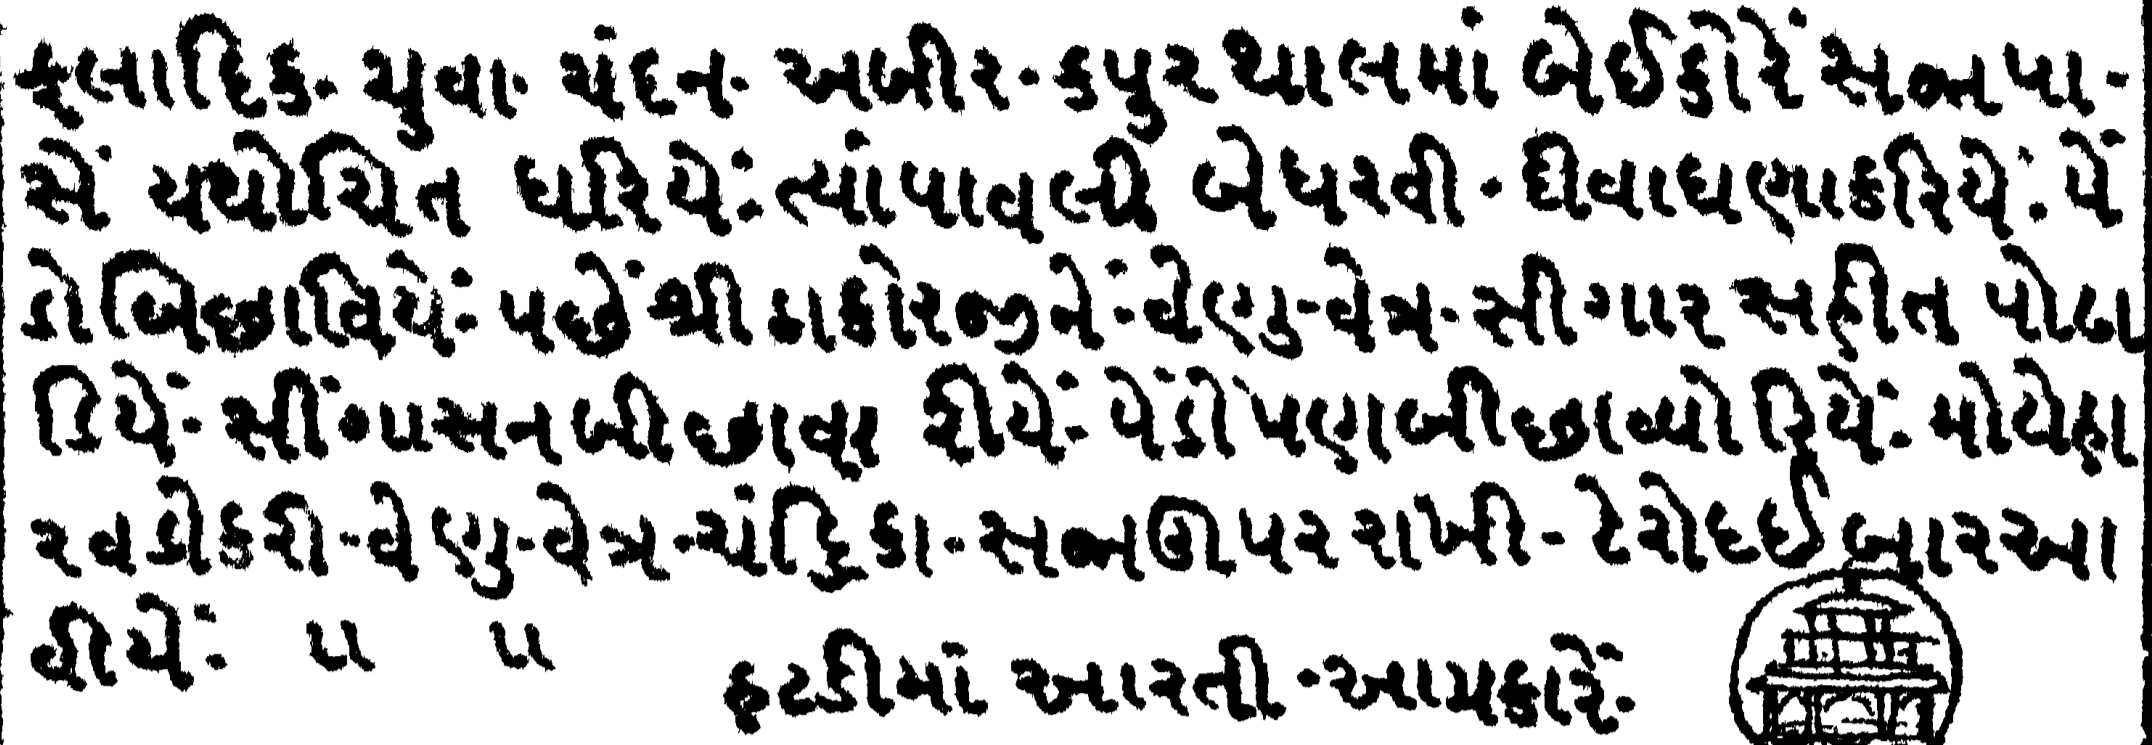 ફૂલાદિક. ચુવા. ચંદન. અબીર. કપુર થાલમાં બેઈકોરેં સજ્જાપા-
સેં યથોચિત ધરિયેં. ત્યાંપાવલી બેધરવી. દીવાઘણાકરિયેં. પેં
ડોબિછાવિયેં. પછેં શ્રીઠાકોરજીનેં. વેણુ-વેત્ર. સીગાર સહીત પોઢા
ડિયેં. સીંગાસનબીછાવર રીયેં. પેંડોંપણબીછાવ્યો રિયેં. મોયેહા
રવડોકરી-વેણુ-વેત્ર-ચંદ્રિકા. સજ્જાઊપરરાખી- ટેરોદઈ બારઆ
વીયેં. ॥ ॥
હટડીમાં આરતી. આમકારેં.